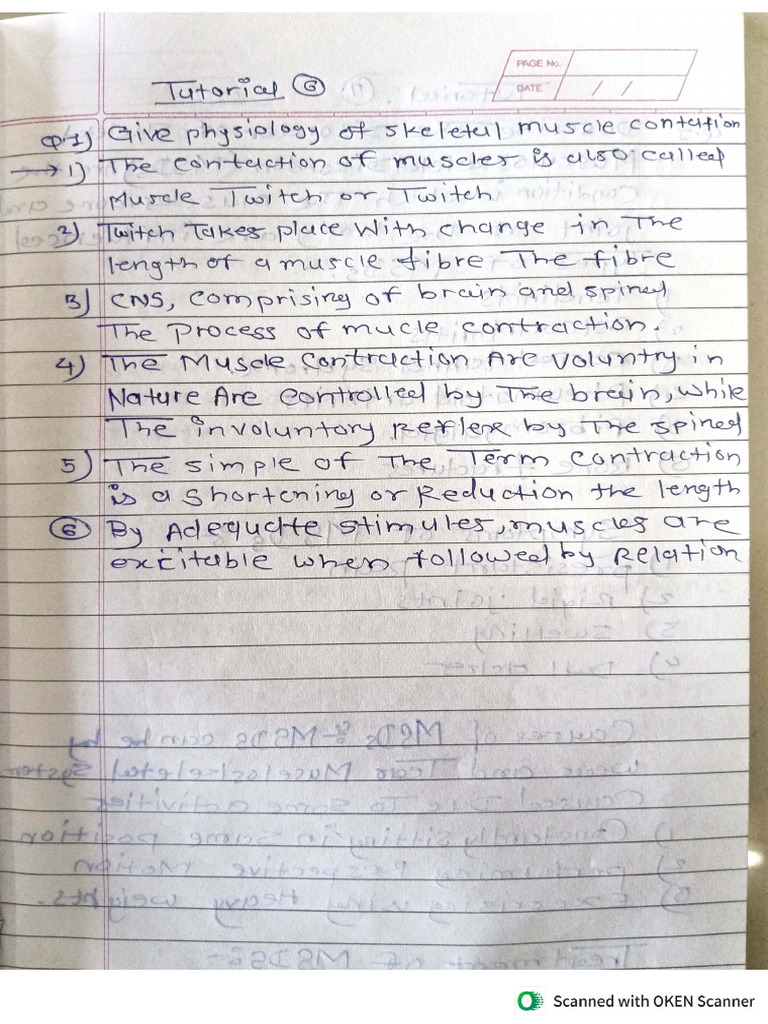 PAGE No.
DATE / /
Tutorial 6
Q1) Give physiology of skeletal muscle contation
→ 1) The contaction of muscles is also called
Muscle Twitch or Twitch
2) Twitch Takes place With change in The
length of a muscle fibre The fibre
3) CNS, comprising of brain and spined
The process of mucle contraction.
4) The Muscle contraction Are voluntry in
Nature Are controlled by The brain, while
The involuntory reflex by The spined
5) The simple of The Term contraction
is a shortening or Reduction the length
6 By Adequate stimules, muscles are
excitable when followed by Relation
Scanned with OKEN Scanner